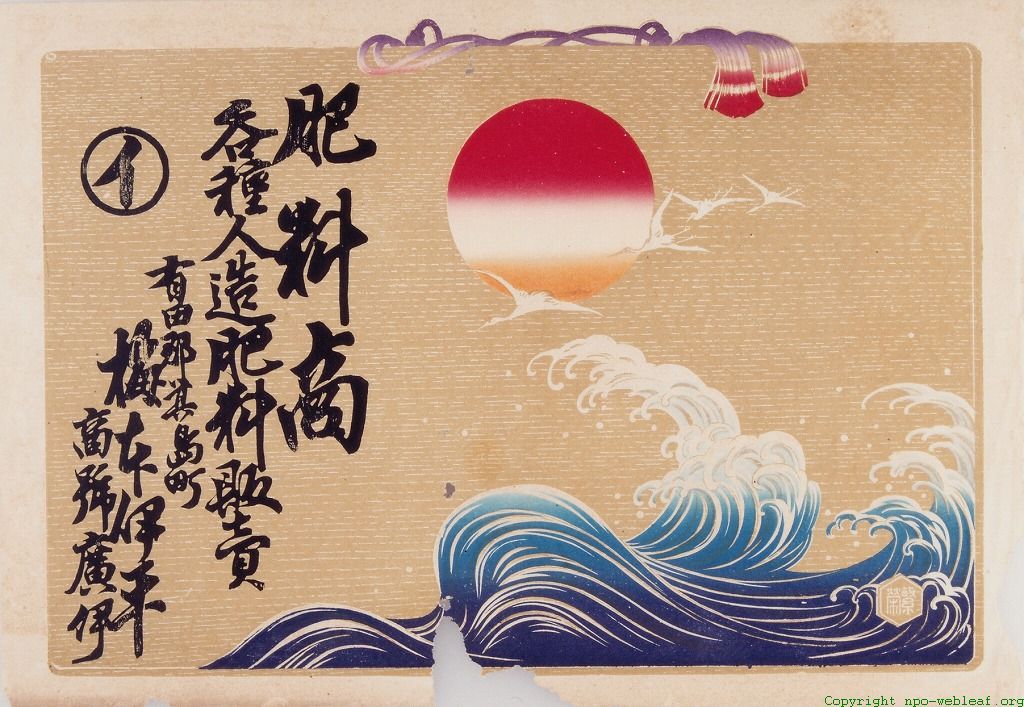 肥料商
各種人造肥料販売
有田郡箕島町
梅本伊平
商號廣伊
イ
繁栄
Copyright npo-webleaf.org